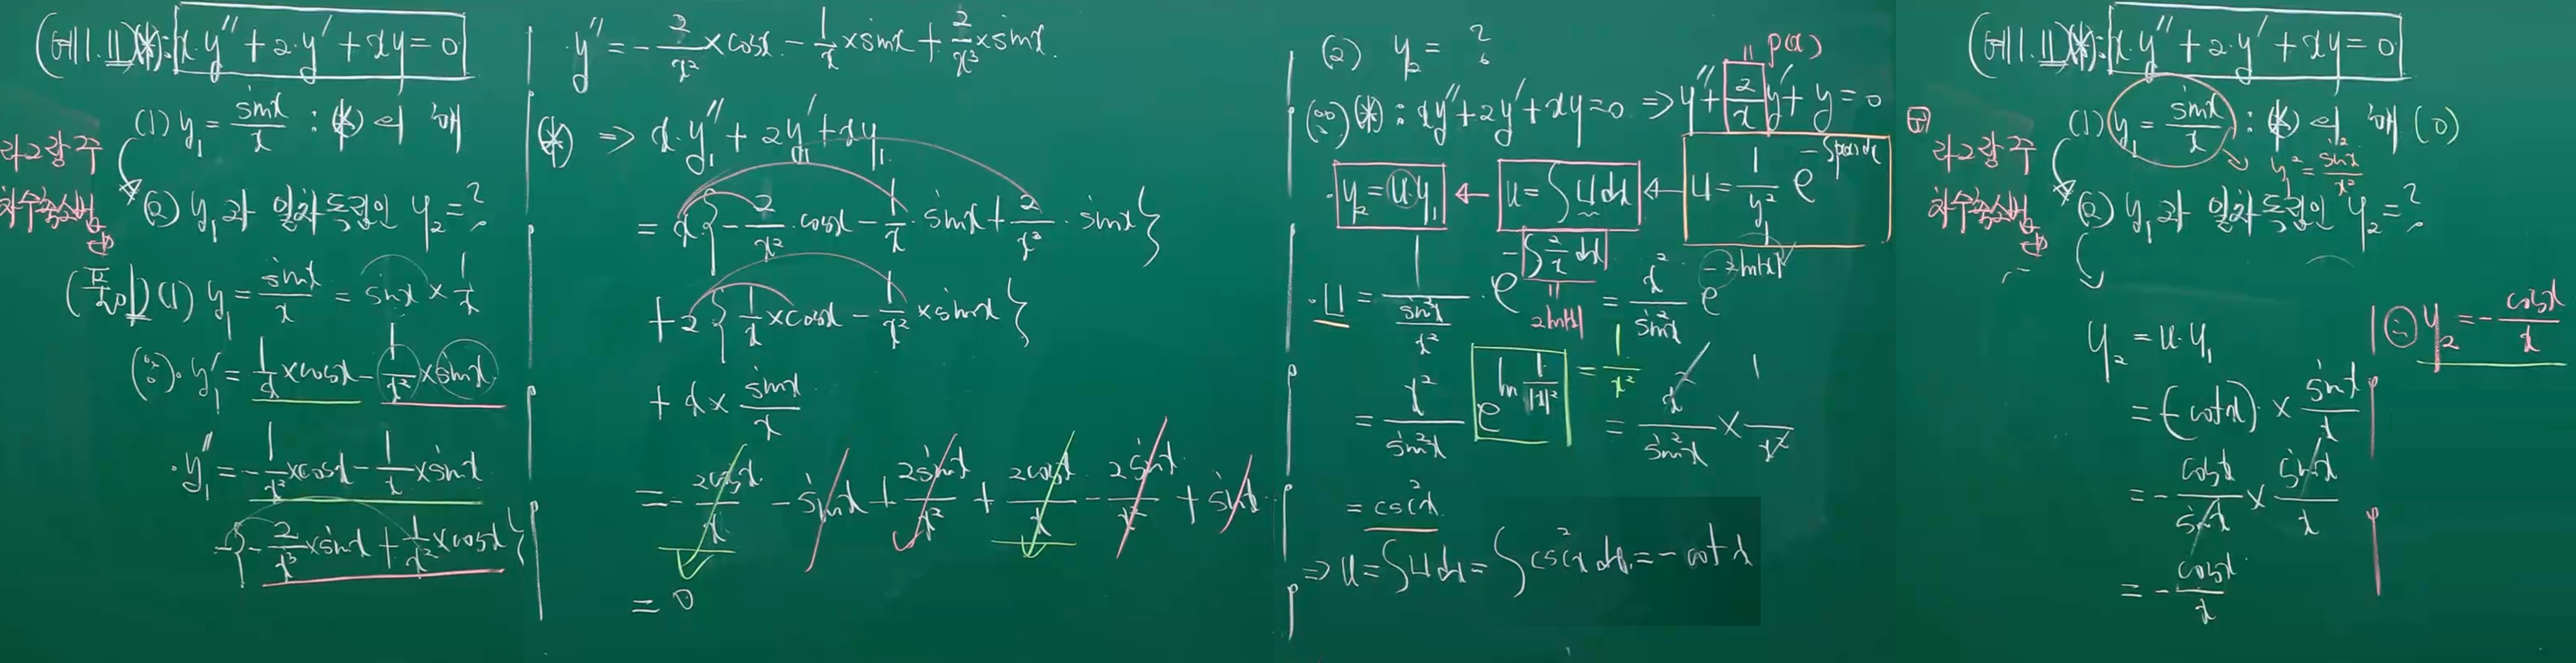 (예1.11)(*): x·y'' + 2·y' + xy = 0
(1) y₁ = sinx/x : (*)의 해
라그랑주
차수축소법
(2) y₁과 일차독립인 y₂ = ?
(풀이) (1) y₁ = sinx/x = sinx × 1/x
(∵)· y₁' = 1/x × cosx - 1/x² × sinx
· y₁'' = -1/x² × cosx - 1/x × sinx
-{-2/x³ × sinx + 1/x² × cosx}
y'' = -2/x² × cosx - 1/x × sinx + 2/x³ × sinx.
(*) ⇒ x·y₁'' + 2y₁' + xy₁
= x{-2/x² · cosx - 1/x · sinx + 2/x³ · sinx}
+ 2{1/x × cosx - 1/x² × sinx}
+ x × sinx/x
= -2cosx/x - sinx + 2sinx/x² + 2cosx/x - 2sinx/x² + sinx
= 0
(2) y₂ = ?
= p(x)
(∵)(*): xy'' + 2y' + xy = 0 ⇒ y'' + 2/x y' + y = 0
· y₂ = u·y₁ ← u = ∫U dx ← U = 1/y₁² e^(-∫p(x)dx)
· U = 1/(sin²x/x²) · e^(-∫2/x dx) = x²/sin²x e^(-2ln|x|)
= 2ln|x|
= x²/sin²x e^(ln 1/|x|²) = 1/x²
= x²/sin²x × 1/x²
= csc²x
⇒ u = ∫U dx = ∫csc²x dx = -cotx
(예1.11)(*): x·y'' + 2·y' + xy = 0
(1) y₁ = sinx/x : (*)의 해 (0)
y₁² = sin²x/x²
라그랑주
차수축소법
(2) y₁과 일차독립인 y₂ = ?
y₂ = u·y₁
= (-cotx) × sinx/x
= -cosx/sinx × sinx/x
= -cosx/x
∴ y₂ = -cosx/x